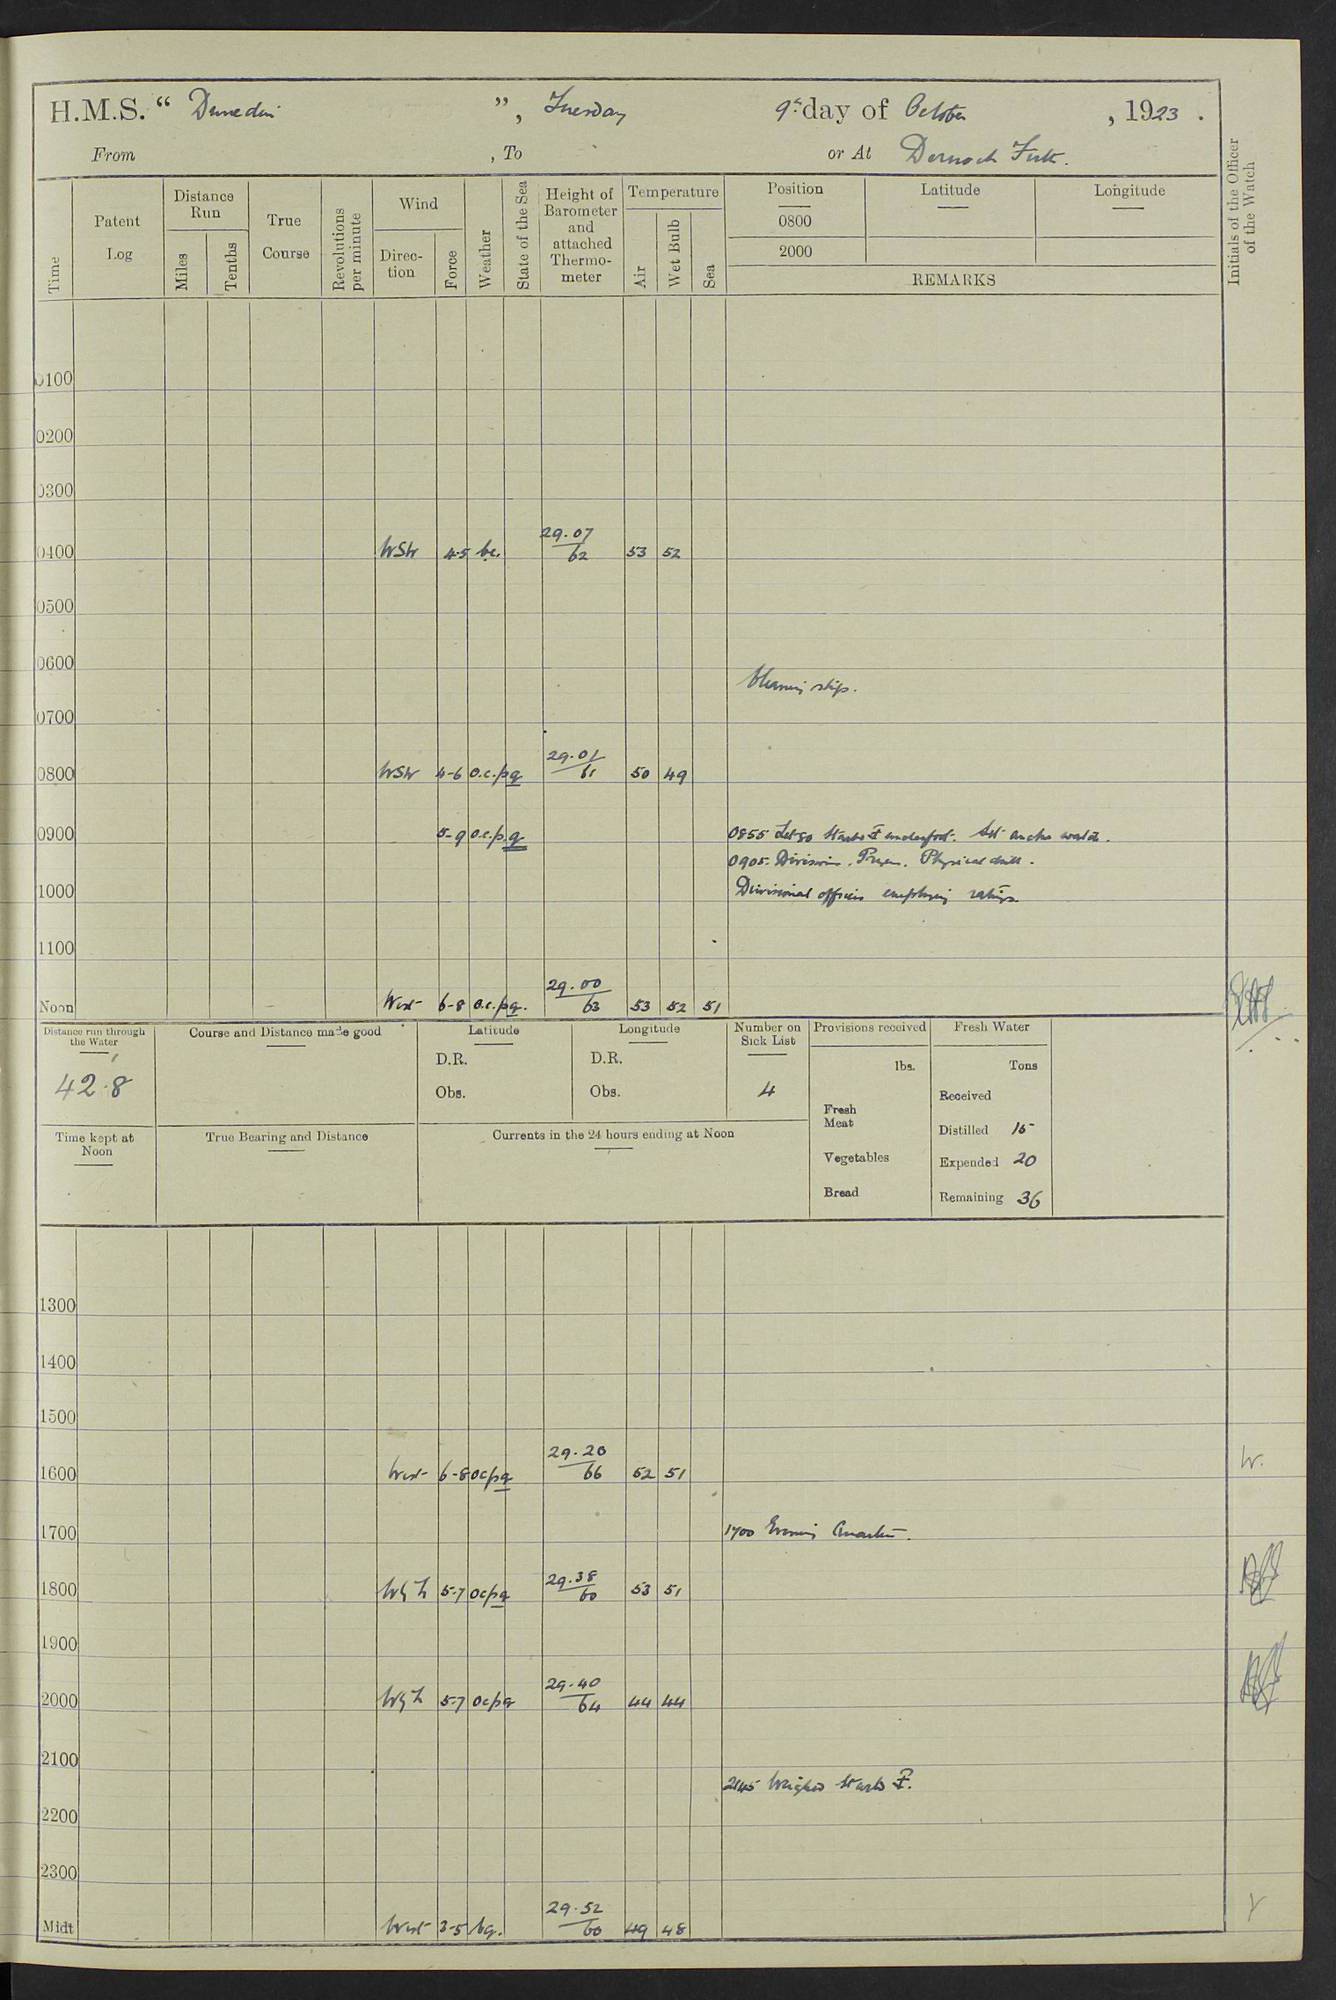 H.M.S. “ Dunedin ”, Tuesday 9th day of October , 1923 .
From , To or At Dornoch Firth.
Time
Patent Log
Distance Run
Miles
Tenths
True Course
Revolutions per minute
Wind
Direction
Force
Weather
State of the Sea
Height of Barometer and attached Thermometer
Temperature
Air
Wet Bulb
Sea
Position Latitude Longitude
0800
2000
REMARKS
Initials of the Officer of the Watch
0100
0200
0300
0400 WSW 4-5 bc. 29.07/62 53 52
0500
0600
Cleaning ship.
0700
0800 WSW 4-6 o.c.p q 29.01/61 50 49
0900 5-9 o.c.p.q 0855 Let go Starbd ⚓ underfoot. Set anchor watch.
0905. Divisions. Prayers. Physical drill.
1000 Divisional officers employing ratings
1100
Noon West 6-8 o.c.p q. 29.00/63 53 52 51
Distance run through the Water
42.8
Time kept at Noon
Course and Distance made good
True Bearing and Distance
Latitude
D.R.
Obs.
Longitude
D.R.
Obs.
Currents in the 24 hours ending at Noon
Number on Sick List
4
Provisions received
lbs.
Fresh Meat
Vegetables
Bread
Fresh Water
Tons
Received
Distilled 15
Expended 20
Remaining 36
1300
1400
1500
1600 West 6-8 ocpq 29.20/66 52 51 W.
1700 1700 Evening Quarters.
1800 5-7 ocpq 29.38/60 53 51
1900
2000 5-7 ocpq 29.40/64 44 44
2100
2145 Weighed Starbd ⚓.
2200
2300
Midt West 3-5 bq. 29.52/60 49 48